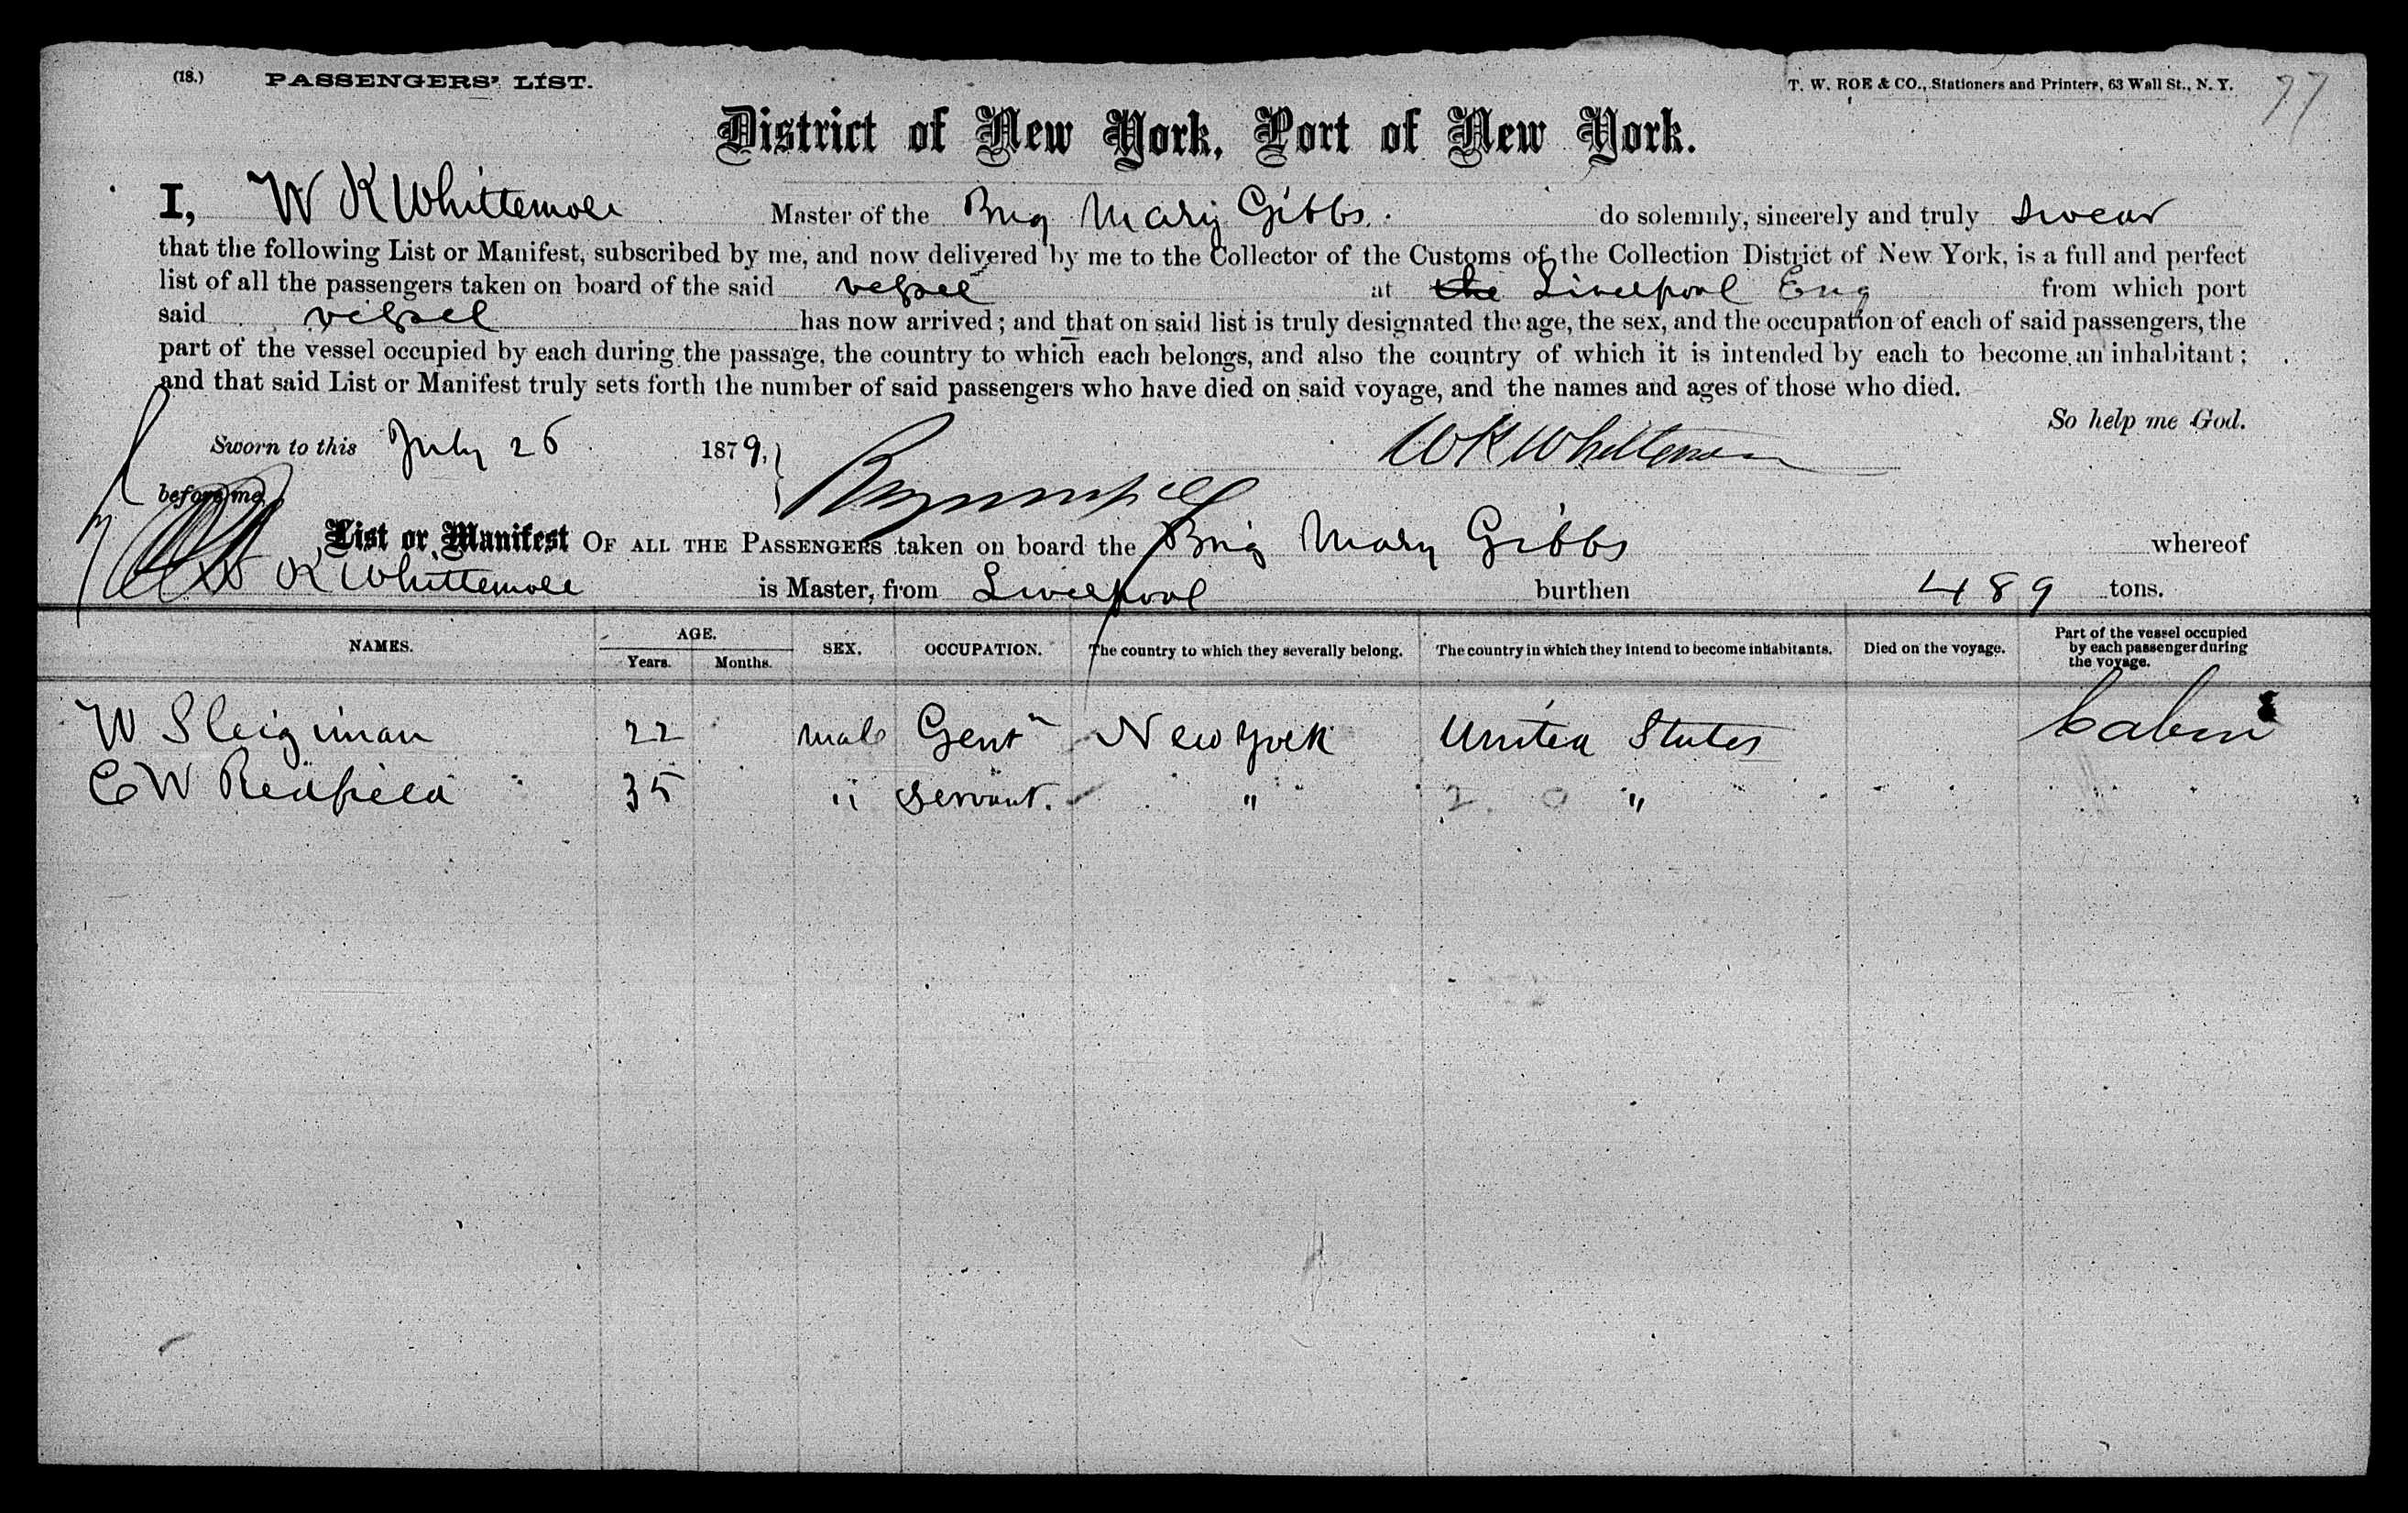 (18.) PASSENGERS' LIST. T. W. ROE & CO., Stationers and Printers, 63 Wall St., N. Y. 77
District of New York, Port of New York.
I, W K Whittemore Master of the Brig Mary Gibbs. do solemnly, sincerely and truly swear
that the following List or Manifest, subscribed by me, and now delivered by me to the Collector of the Customs of the Collection District of New York, is a full and perfect
list of all the passengers taken on board of the said vessel at the Liverpool Eng from which port
said vessel has now arrived; and that on said list is truly designated the age, the sex, and the occupation of each of said passengers, the
part of the vessel occupied by each during the passage, the country to which each belongs, and also the country of which it is intended by each to become an inhabitant;
and that said List or Manifest truly sets forth the number of said passengers who have died on said voyage, and the names and ages of those who died.
So help me God.
Sworn to this July 26 1879, W K Whittemore
before me,
List or Manifest OF ALL THE PASSENGERS taken on board the Brig Mary Gibbs whereof
W K Whittemore is Master, from Liverpool burthen 489 tons.
NAMES. AGE. Years. Months. SEX. OCCUPATION. The country to which they severally belong. The country in which they intend to become inhabitants. Died on the voyage. Part of the vessel occupied by each passenger during the voyage.
W 22 male Gentn New York United States Cabin
E W Redfield 35 " servant. " 2 0 "